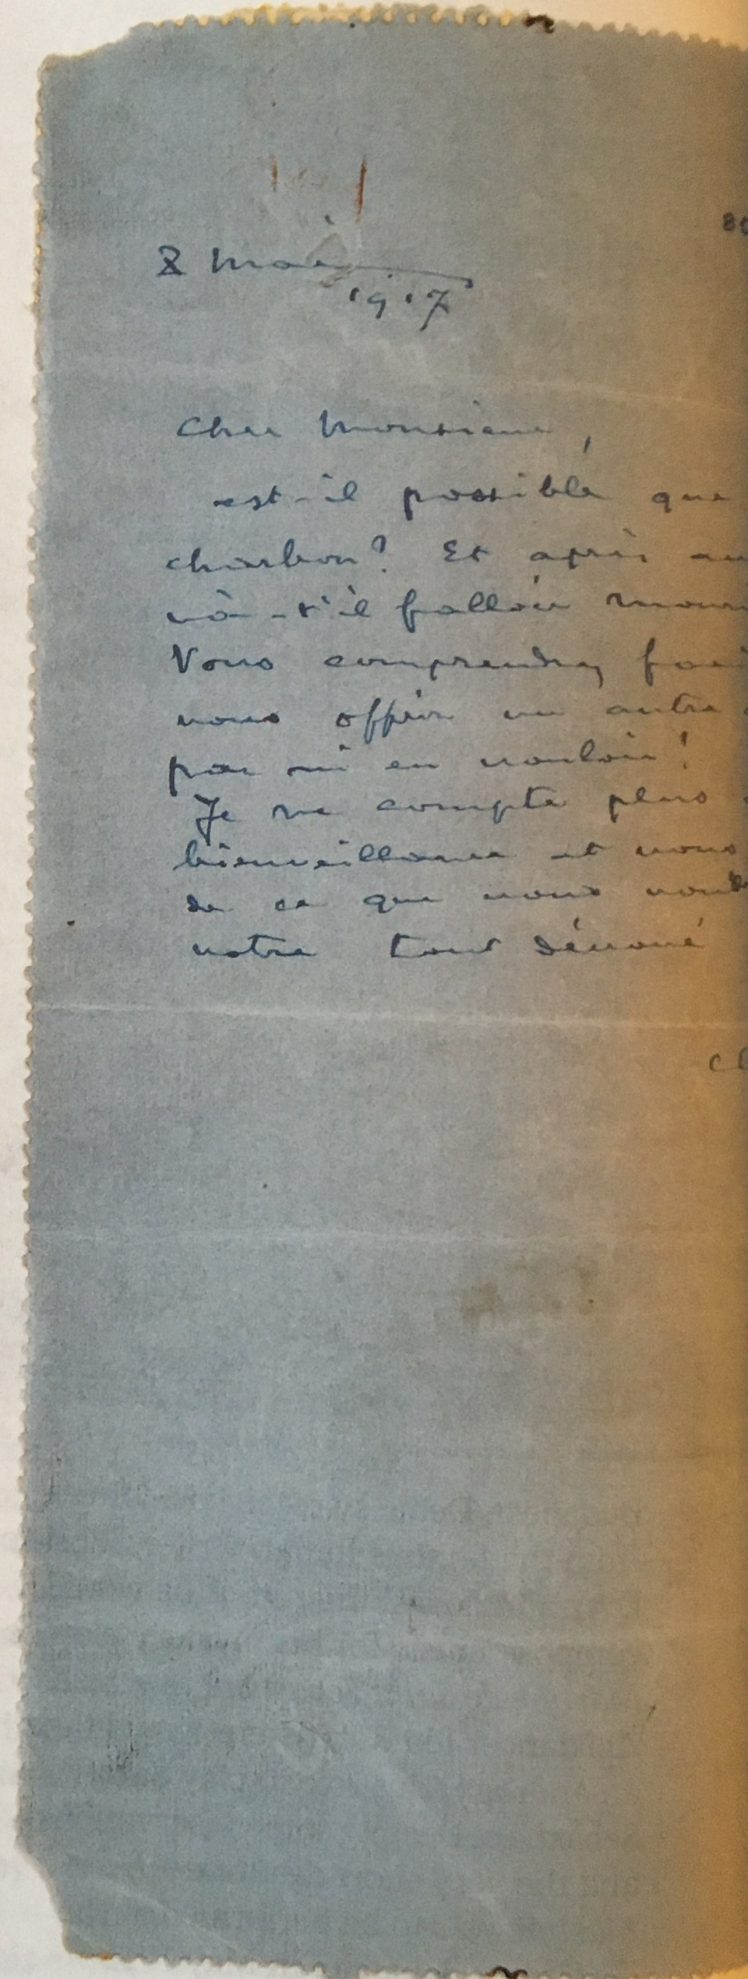 8 mai
1917
Cher Monsieur,
est-il possible que
charbon? Et après
va-t'il falloir
Vous comprendrez
vous offrir un autre
pas m'en vouloir!
Je ne compte plus
bienveillance et vous
de ce que vous
votre tout dévoué